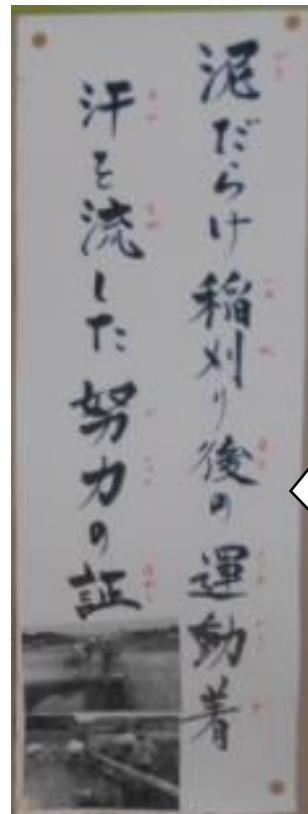 泥だらけ稲刈り後の運動着
汗を流した努力の証